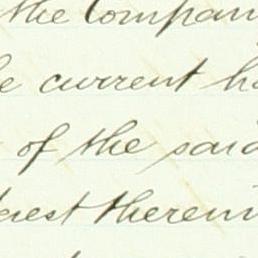 the Compan
current ha
of the said
rest therein